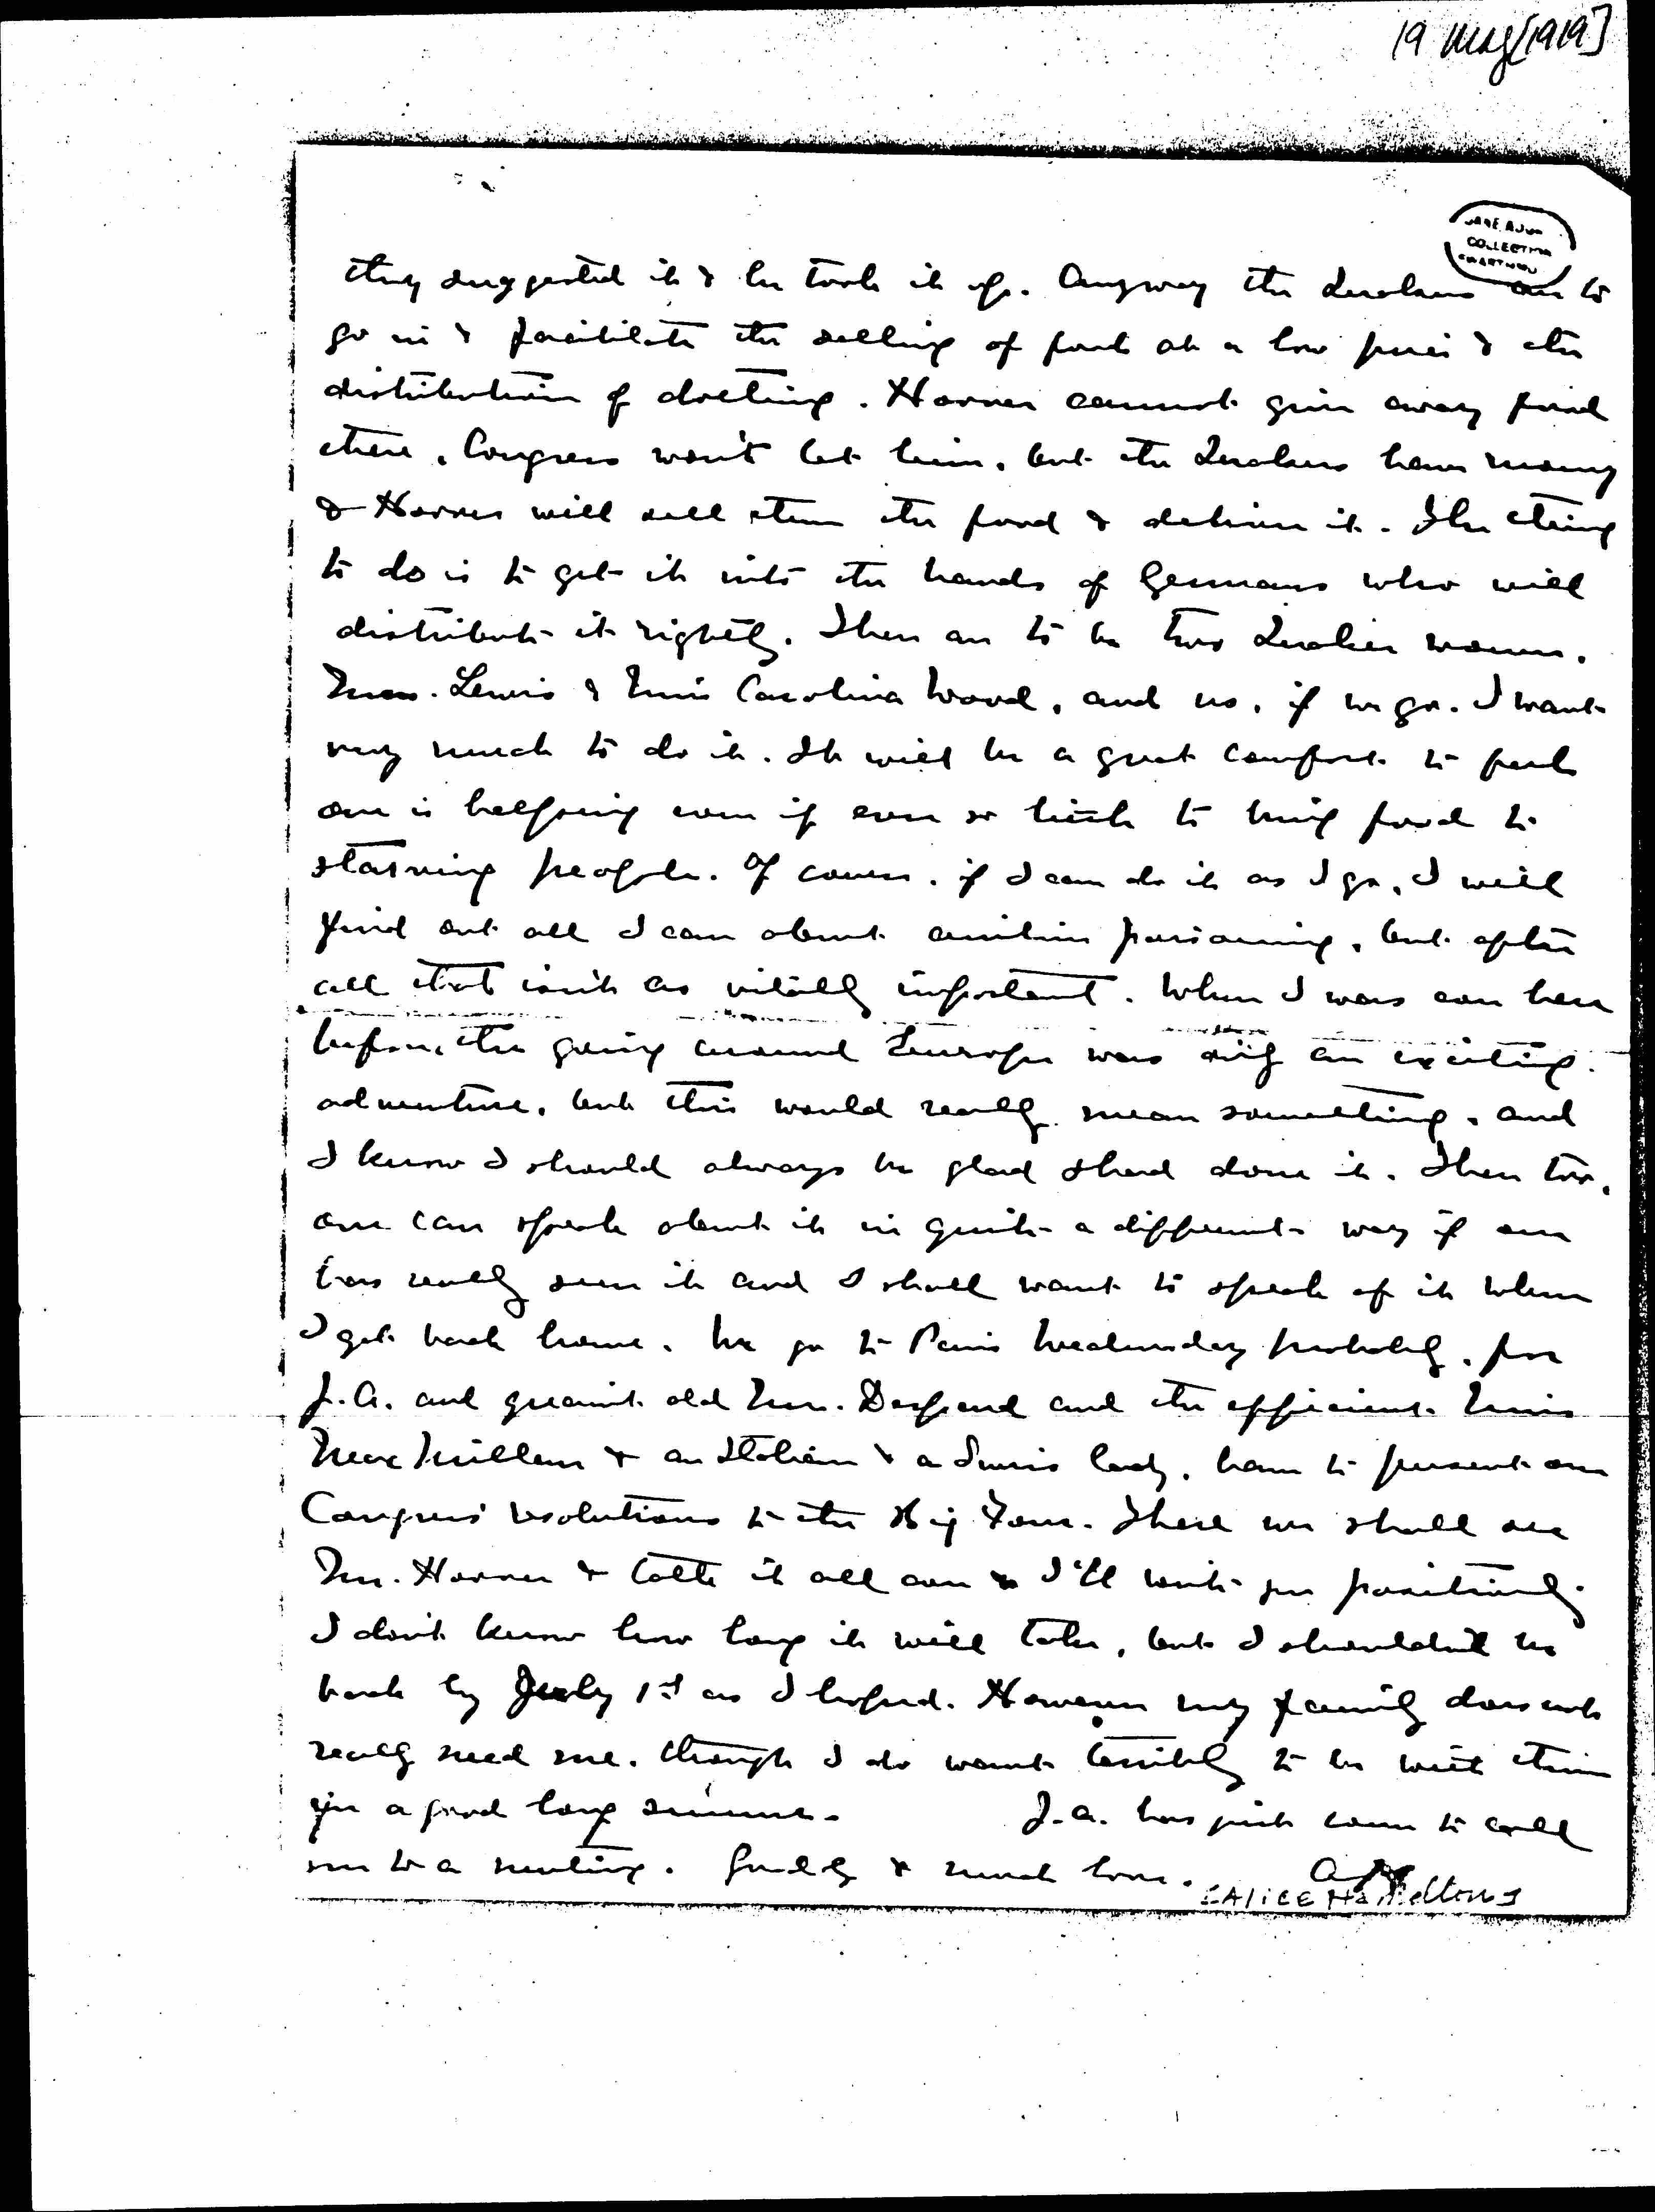 19 May [1919]
JANE ADDAMS
COLLECTION
SWARTHMORE
they suggested it & he took it up. Anyway the Quakers are to
go in & facilitate the selling of food at a low price & the
distribution of clothing. Hoover cannot give away food
there, Congress won't let him, but the Quakers have money
& Hoover will sell them the food & deliver it. The thing
to do is to get it into the hands of Germans who will
distribute it rightly. There are to be two Quaker women.
Mrs. Lewis & Miss Carolina Wood, and us, if we go. I want
very much to do it. It will be a great comfort to feel
one is helping even if ever so little to bring food to
starving people. Of course, if I can do it as I go, I will
find out all I can about aniline poisoning, but after
all that isn't as vitally important. When I was over here
before, the going around Europe was only an exciting
adventure, but this would really mean something, and
I know I should always be glad I had done it. Then too,
one can speak about it in quite a different way if one
has really seen it and I shall want to speak of it when
I get back home. We go to Paris Wednesday probably, for
J.A. and quaint old Mrs. Despard and the efficient Miss
MacMillan & an Italian & a Swiss lady, have to present our
Congress' resolutions to the Big Four. There we shall see
Mr. Hoover & talk it all over & I'll write you positively.
I don't know how long it will take, but I shouldn't be
back by July 1st as I hoped. However my family does not
really need me, though I do want terribly to be with them
for a good long summer. J.A. has just come to call
me to a meeting. Goodby & much love.
A.H.
[ALICE Hamilton]